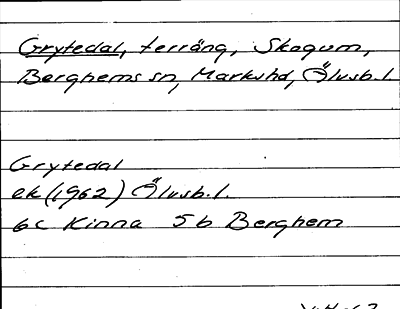 Grytedal, terräng, Skogum,
Berghems sn, Markshd, Älvsb. l
Grytedal
ek (1962) Älvsb. l.
6c Kinna 5b Berghem